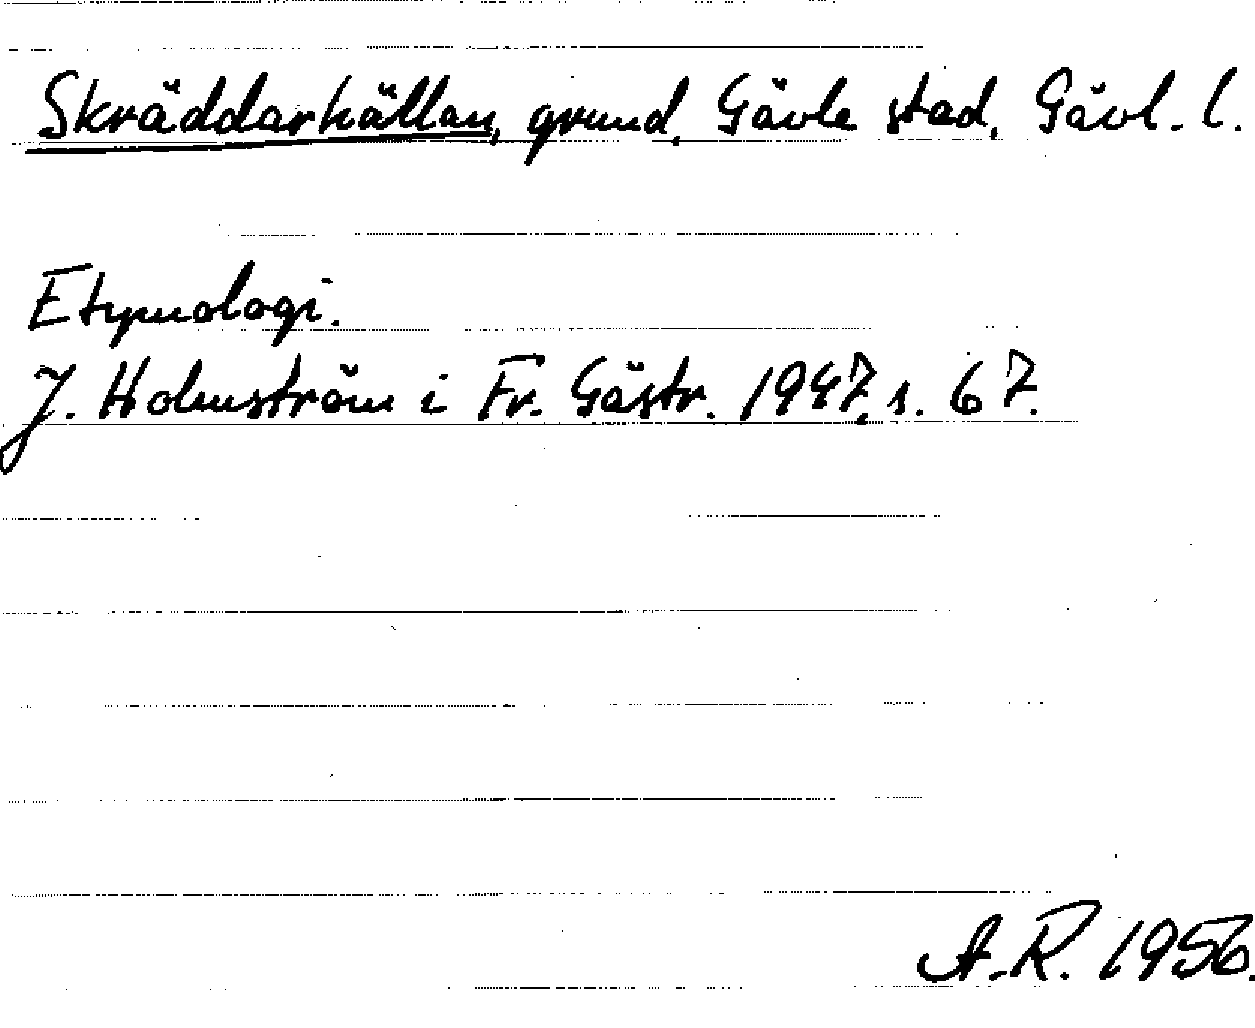 Skräddarhällan, grund, Gävle stad, Gävl. l.
Etymologi.
J. Holmström i Fr. Gästr. 1947, s. 67.
A.R. 1956.